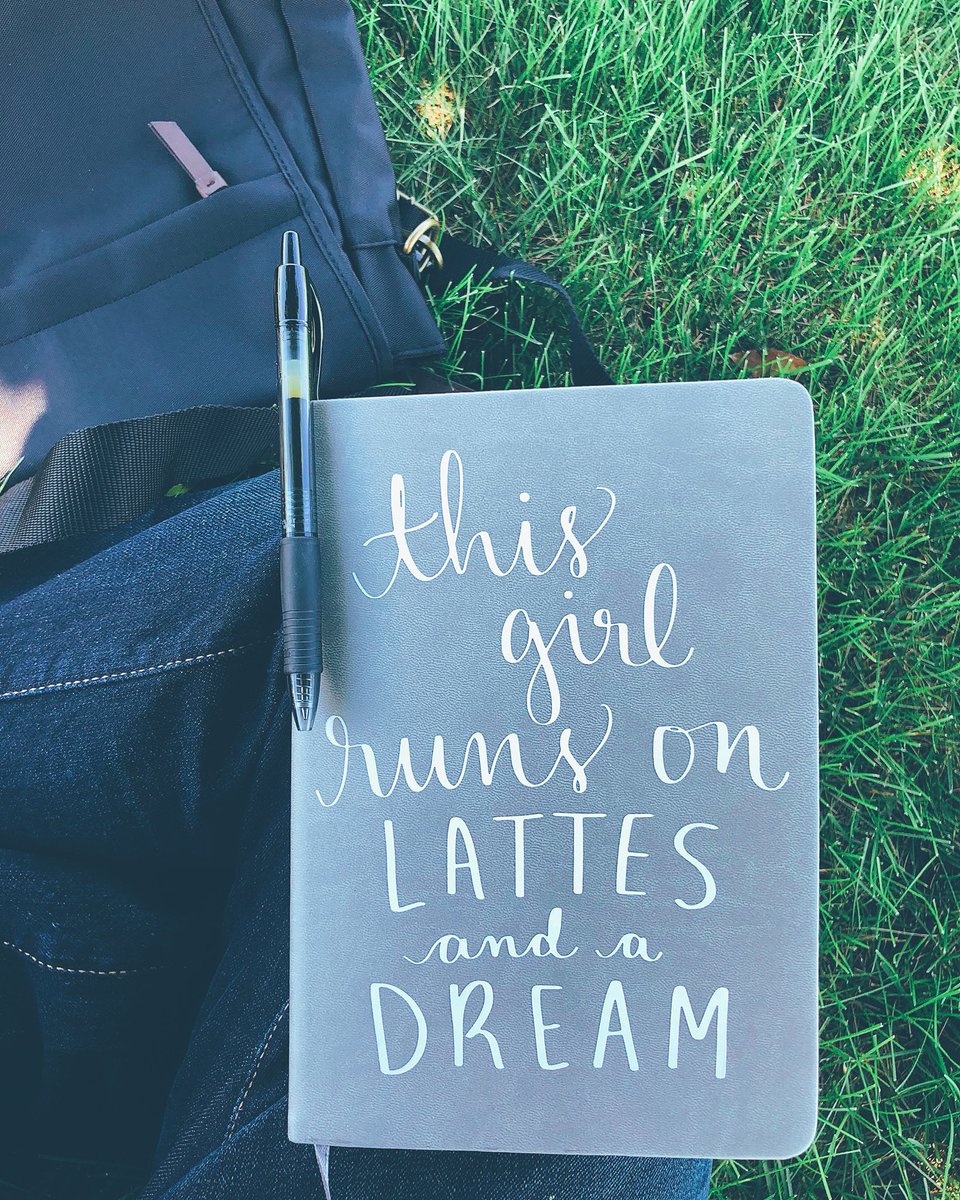 this
girl
runs on
LATTES
and a
DREAM